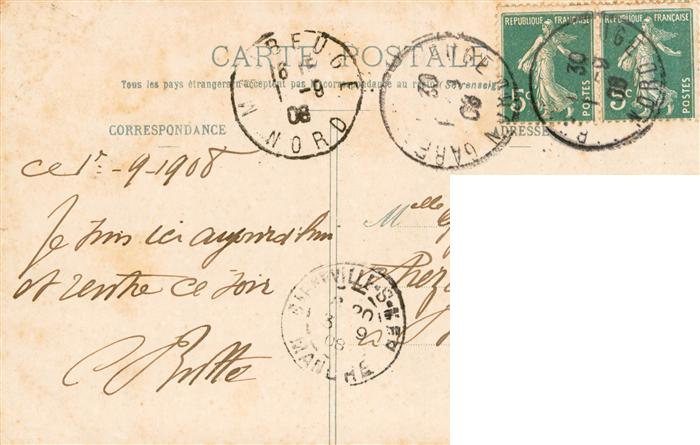 CARTE POSTALE
Tous les pays étrangers n'acceptent pas la correspondance au recto
CORRESPONDANCE
ADRESSE
ce 1r -9-1908
Je suis ici aujourd'hui
et rentre ce soir
Mlle
REPUBLIQUE FRANÇAISE
5c
POSTES
REPUBLIQUE FRANÇAISE
5c
POSTES
1 -9
08
NORD
30
1 9
08
GARE
30
1 -9
08
NORD
VILLE-S-MER
3 9
08
MANCHE